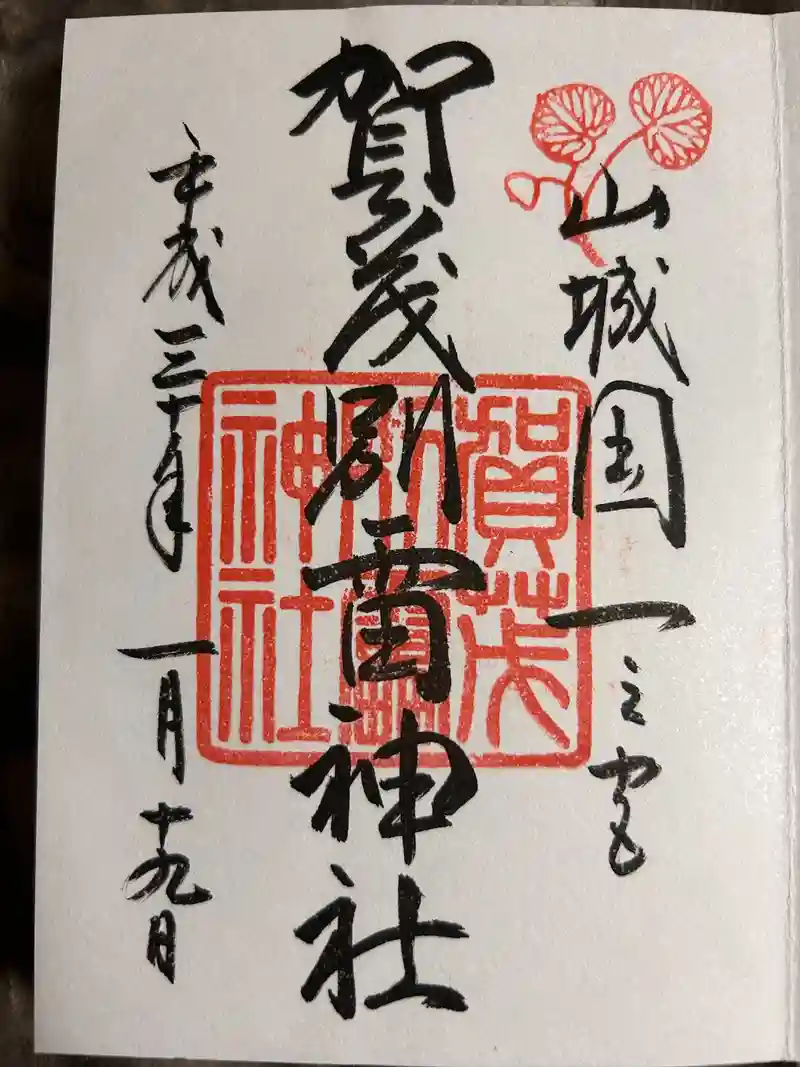 山城国一之宮
賀茂別雷神社
賀茂別雷神社
平成三十年一月十九日